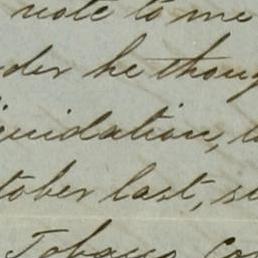 note to me
der he thoug
iquidation,
tober last, su
Tobacco Co